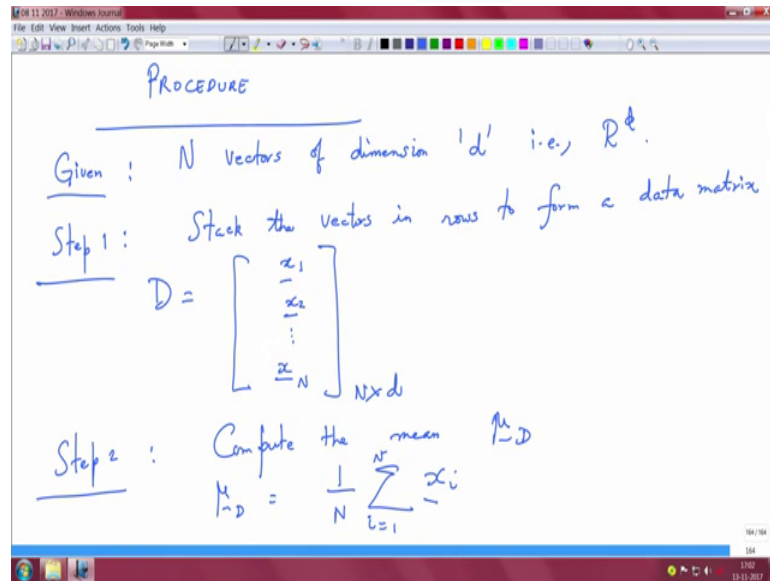 08 11 2017 - Windows Journal
File Edit View Insert Actions Tools Help
Page Width
PROCEDURE
Given : N vectors of dimension 'd' i.e., R^d.
Step 1 : Stack the vectors in rows to form a data matrix
D = [ x1
x2
⋮
xN ] N×d
Step 2 : Compute the mean μ_D
μ_D = 1/N ∑_{i=1}^{N} x_i
164 / 164
164
17:02
13-11-2017